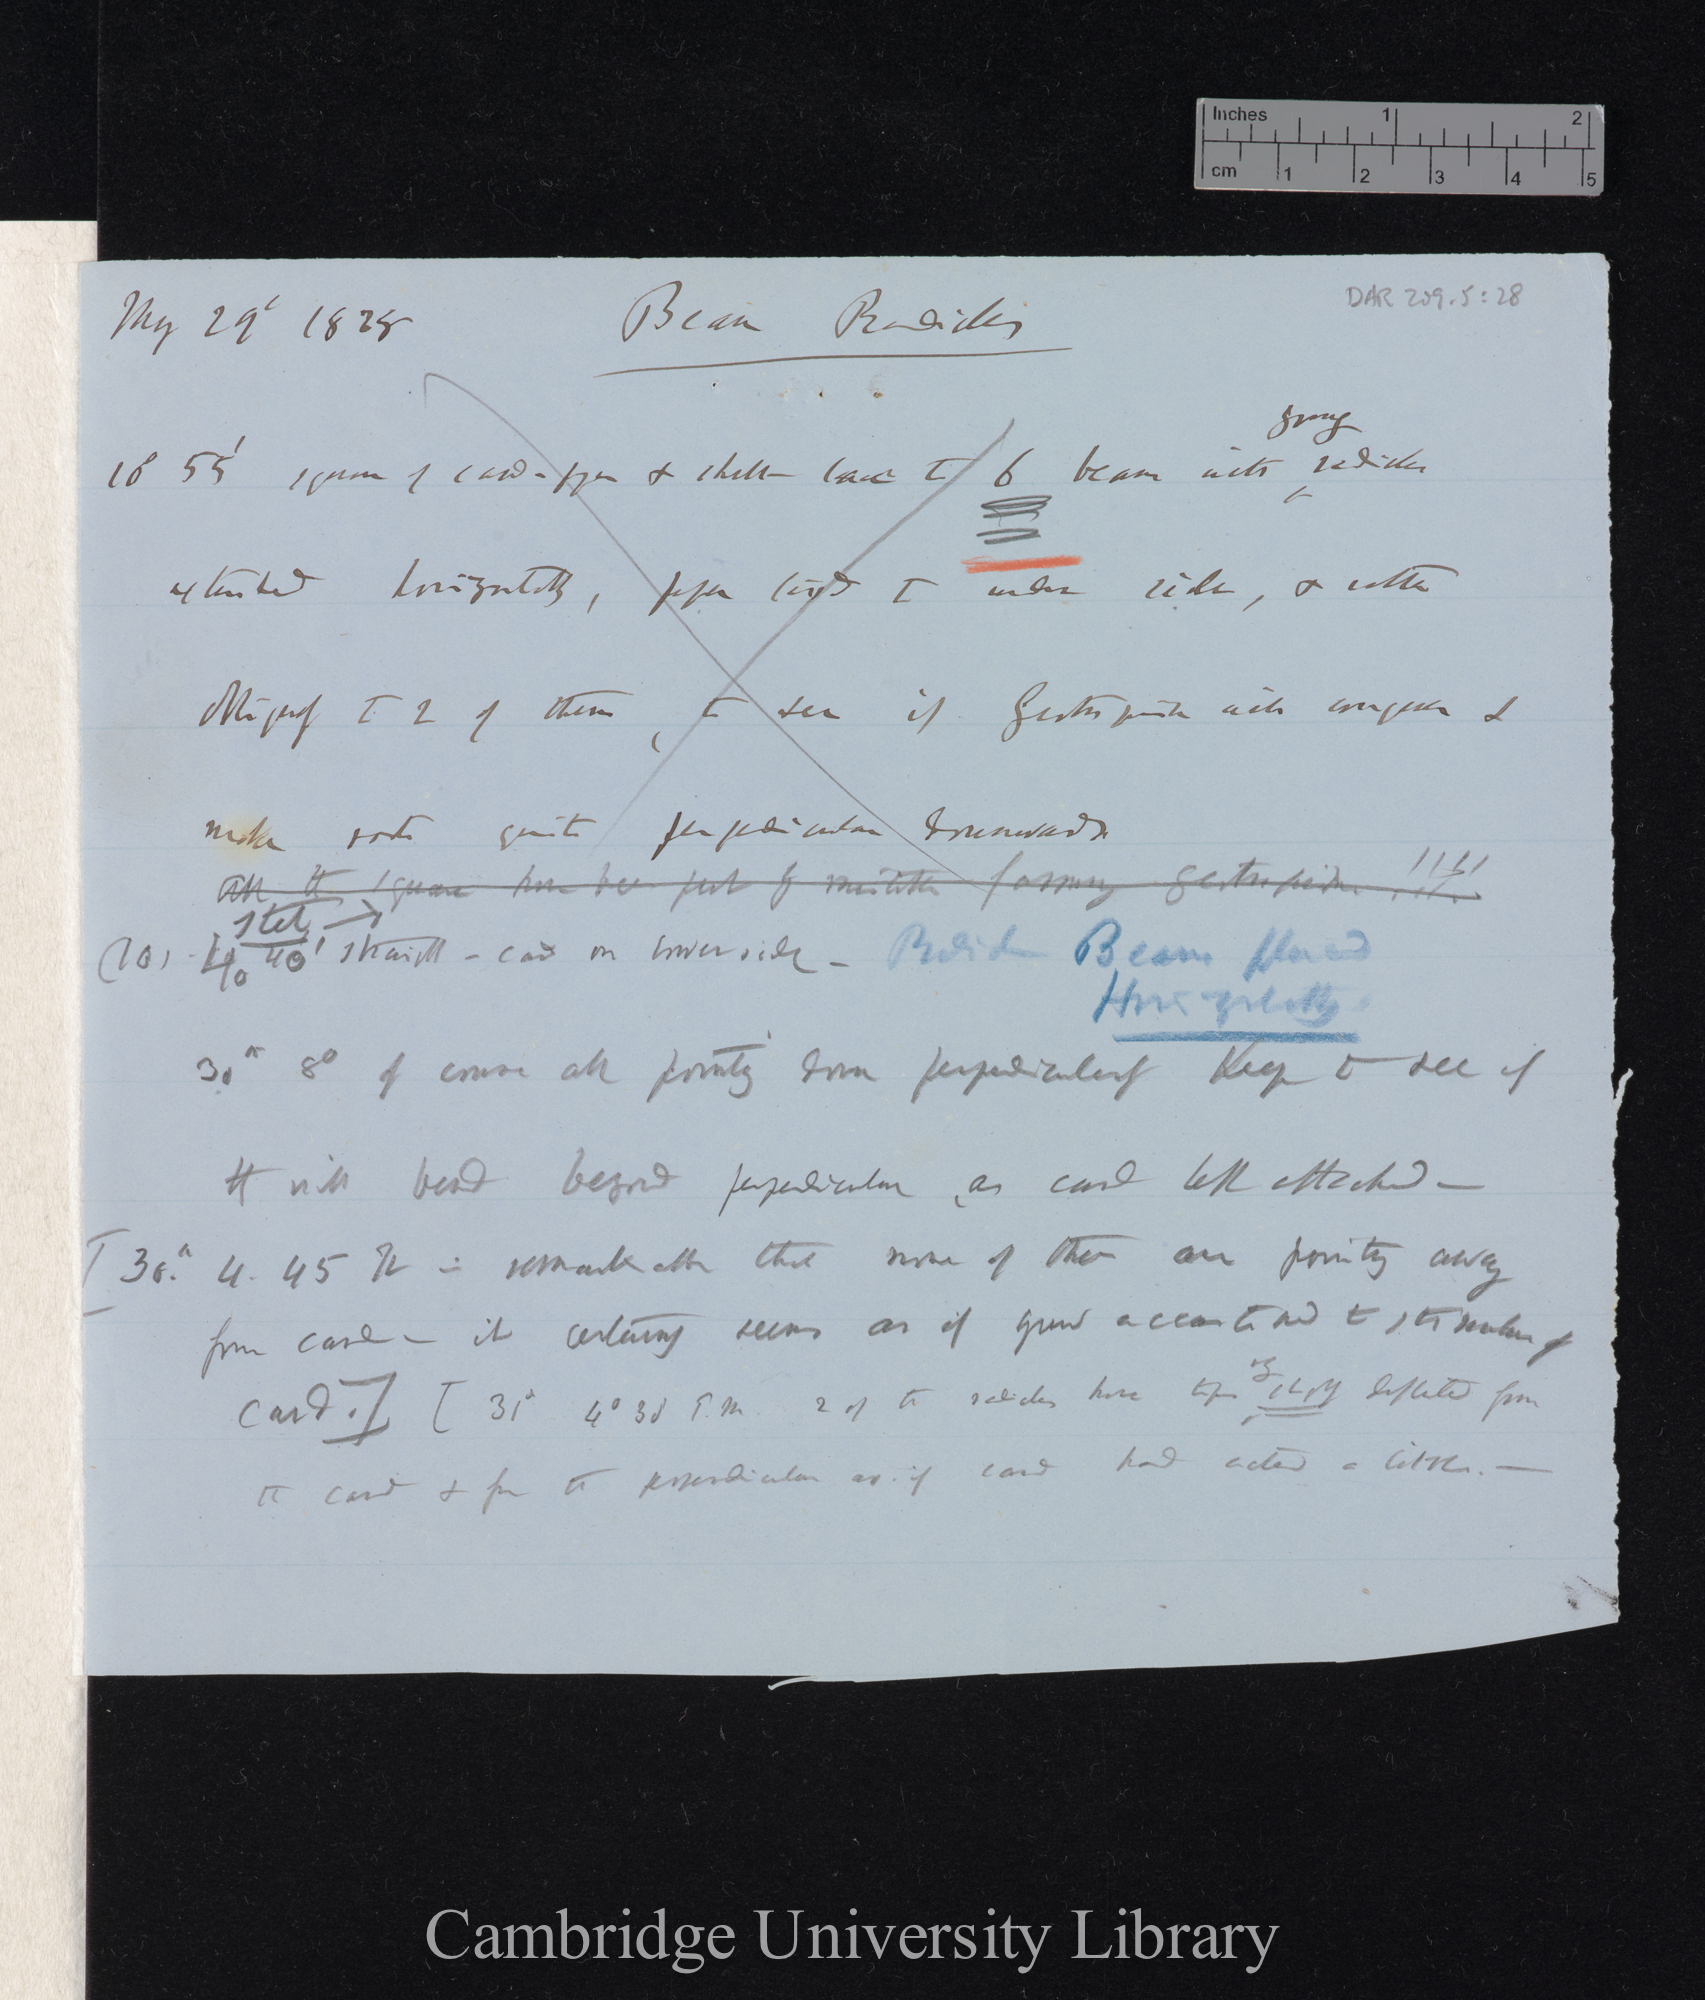 Inches 1 2
cm 1 2 3 4 5
DAR 209.5:28
May 29' 1878 Bean Radicles
young
10° 55' squares of card-paper & shell-lac to 6 beans with radicles
extended horizontally, paper fixed to under side, & rather
obliquely to 2 of them, to see if Geotropism will conquer &
make roots quite perpendicular downwards
All the squares have been put by mistake facing geotropism !!!!
stet →
40' straight - card on lower side - Radicles Beans placed
Horizontally
30th 8° of course all pointing down perpendicularly Keep to see if
they will bend beyond perpendicular, as card left attached —
[30th 4. 45 It is remarkable that none of them are pointing away
from card — it certainly seems as if grew accustomed to stimulus of
card.] [31st 4° 30' P.M. 2 of the radicles have tips slightly deflected from
the card & from the perpendicular as if card had acted a little. —
Cambridge University Library